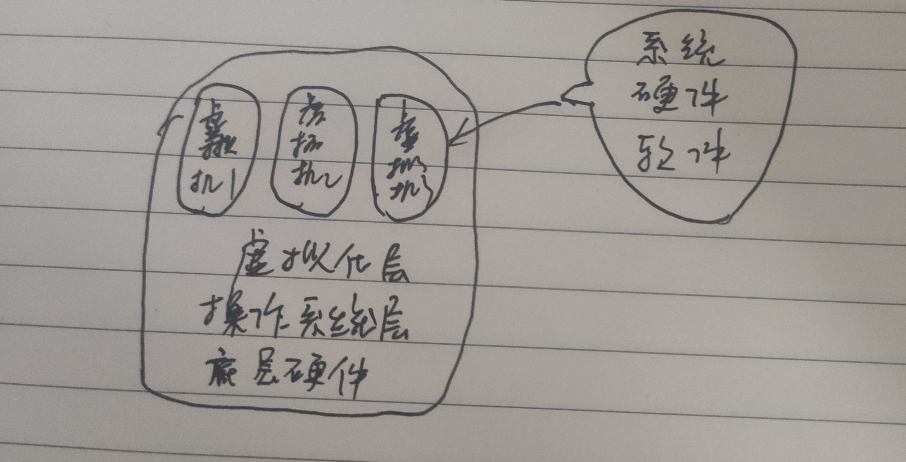 系统
硬件
软件
虚拟
机1
虚
拟
机2
虚
拟
机3
虚拟化层
操作系统层
底层硬件